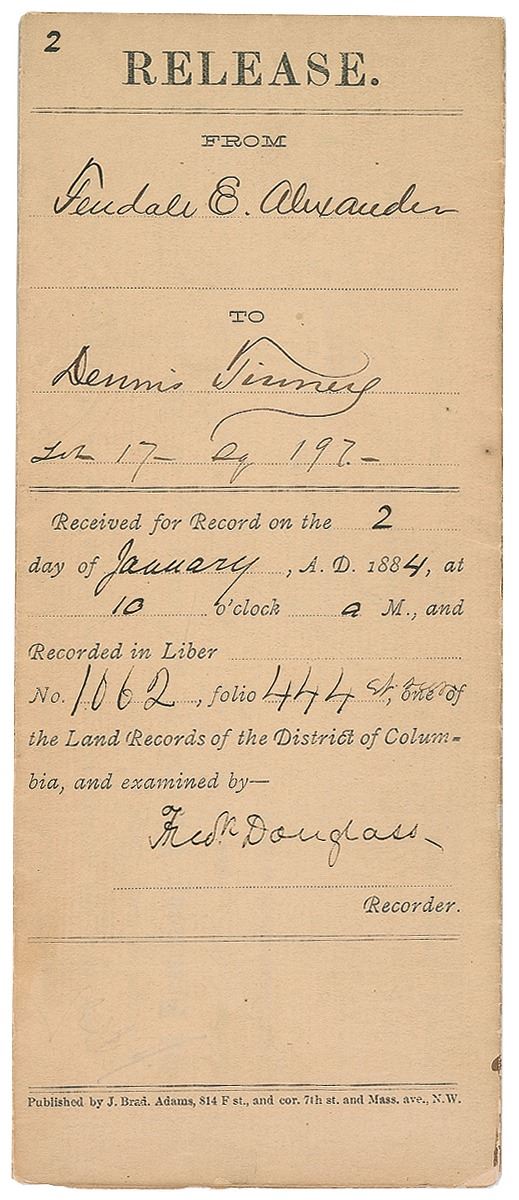 2
RELEASE.
FROM
Fendale E. Alexander
TO
Dennis Finney
Lot 17 - Sq 197. -
Received for Record on the 2
day of January, A. D. 1884, at
10 o'clock a M., and
Recorded in Liber
No. 1062, folio 444 et, one of
the Land Records of the District of Colum-
bia, and examined by—
Fredk Douglass
Recorder.
Published by J. Brad. Adams, 814 F st., and cor. 7th st. and Mass. ave., N.W.